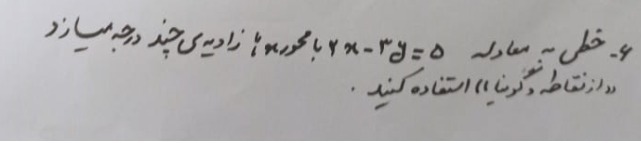 ۶- خطی به معادله ۲x - ۳y = ۵ با محور xها زاویه‌ی چند درجه میسازد
«از نقاطه و گونیا» استفاده کنید.